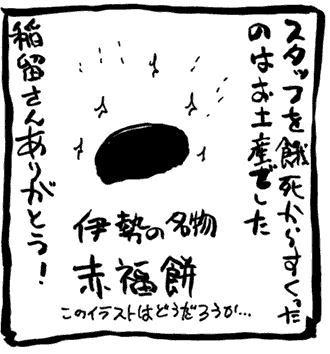 スタッフを餓死からすくった
のはお土産でした
伊勢の名物
赤福餅
このイラストはどうだろうか…
稲留さんありがとう!